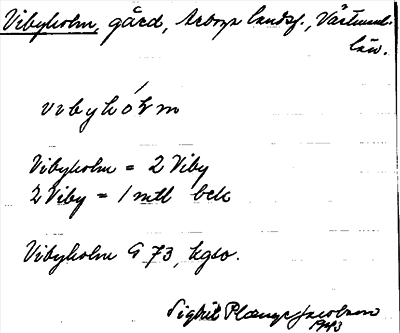 Vibyholm, gård, Arboga landsf., Västmanl.
län.
vibyhól̥m
Vibyholm = 2 Viby
2 Viby = 1 mtl bek
Vibyholm G 73, kgso.
Sigrid Jacobsen
1943